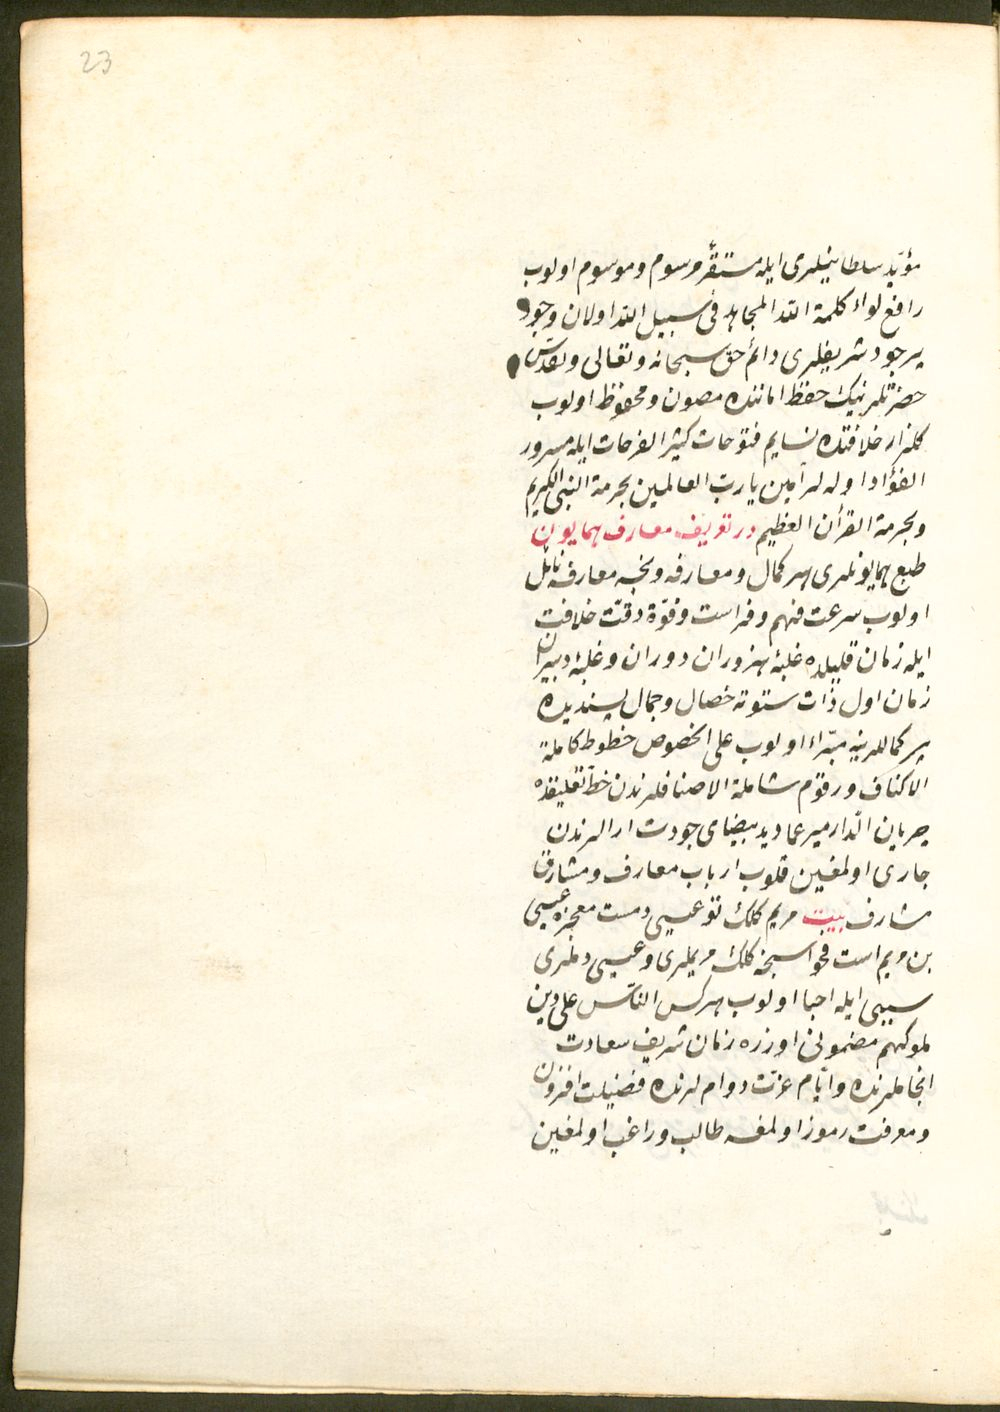 23
مؤبّد سلطانیلری ایله مستقرّ و رسوم و موسوم اولوب
رافع لواء كلمة الله المجاهد فی سبیل الله اولان وجود
پرجود شریفلری دائم حق سبحانه وتعالی وتقدّس
حضرتلرینك حفظ اماننده مصون ومحفوظ اولوب
كلزار خلافتده نسایم فتوحات كثیر الفرحات ایله مسرور
الفؤاد اوله لر آمین یا ربّ العالمین بحرمة النبی الكریم
وبحرمة القرأن العظیم در تعریف معارف همایون
طبع همایونلری هر كمال ومعارفه ونخبه معارفه نائل
اولوب سرعت فهم وفراست وقوّة دقّت خلافت
ایله زمان قلیلده غلبۀ هنروران دوران وغلبۀ دبیران
زمان اول ذات ستوته خصال وجمال پسندیده
پر كماللرینه مبرّاء اولوب علی الخصوص خطوط كاملة
الاكناف ورقوم شاملة الاصنافلرندن خطّ تعلیقده
جریان الدار میر عماد ید بیضای جودت ارالرندن
جاری اولمغین قلوب ارباب معارف ومشارق
مشارف بیت مریم كلك تو عیسی دمست معجزه عیسی
بن مریم است فحواسنجه كلك مریملری وعیسی دملری
سببی ایله احیا اولوب هركس الناس علی دین
ملوكهم مضمونی اوزره زمان شریف سعادت
انجاملرنده وایّام عزّت دواملرنده فضیلت افزون
ومعرفت رموز اولمغه طالب وراغب اولمغین